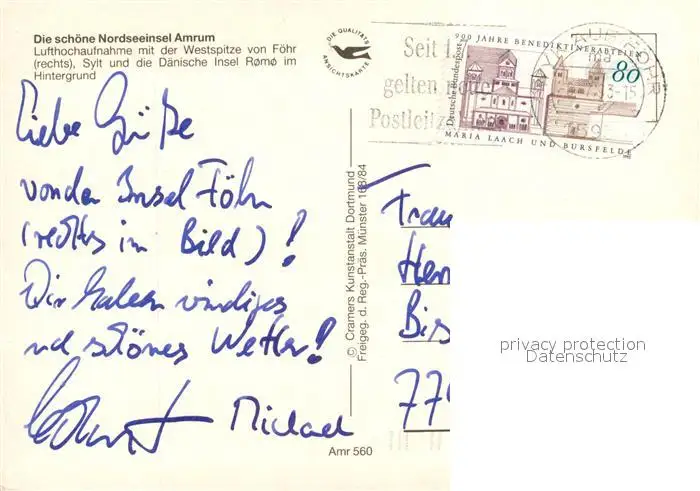 Die schöne Nordseeinsel Amrum
Lufthochaufnahme mit der Westspitze von Föhr
(rechts), Sylt und die Dänische Insel Rømø im
Hintergrund
DIE QUALITÄTS
ANSICHTSKARTE
Seit 1.7.
gelten neue
Postleitz
900 JAHRE BENEDIKTINERABTEIEN
Deutsche Bundespost
80
MARIA LAACH UND BURSFELDE
AUF FÖHR
ma
3-15
Liebe Grüße
von der Insel Föhr
(rechts im Bild)!
Wir haben windiges
und schönes Wetter!
Michael
© Cramers Kunstanstalt Dortmund
Freigeg. d. Reg.-Präs. Münster 168/84
Frau
Her
Bis
77
Amr 560
privacy protection
Datenschutz